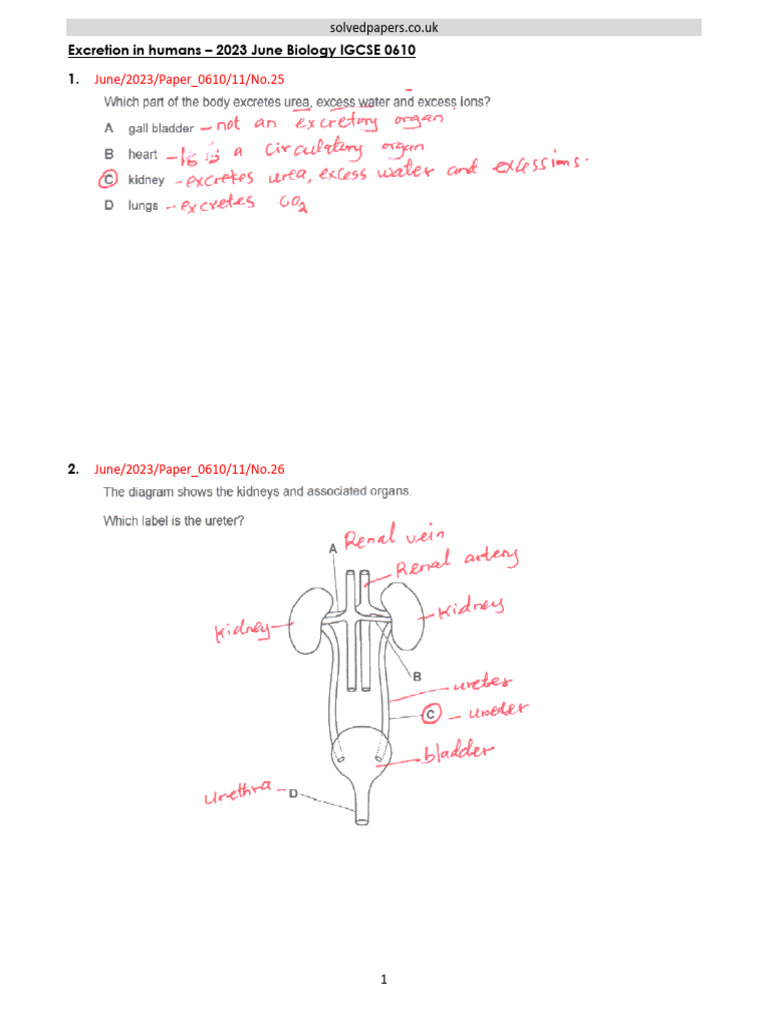 solvedpapers.co.uk
Excretion in humans – 2023 June Biology IGCSE 0610
1. June/2023/Paper_0610/11/No.25
Which part of the body excretes urea, excess water and excess ions?
A gall bladder – not an excretory organ
B heart – It is a circulatory organ
C kidney – excretes urea, excess water and excess ions.
D lungs -- excretes CO2
2. June/2023/Paper_0610/11/No.26
The diagram shows the kidneys and associated organs.
Which label is the ureter?
A Renal vein
Renal artery
kidney
kidney
B
ureter
C – ureter
bladder
urethra – D
1